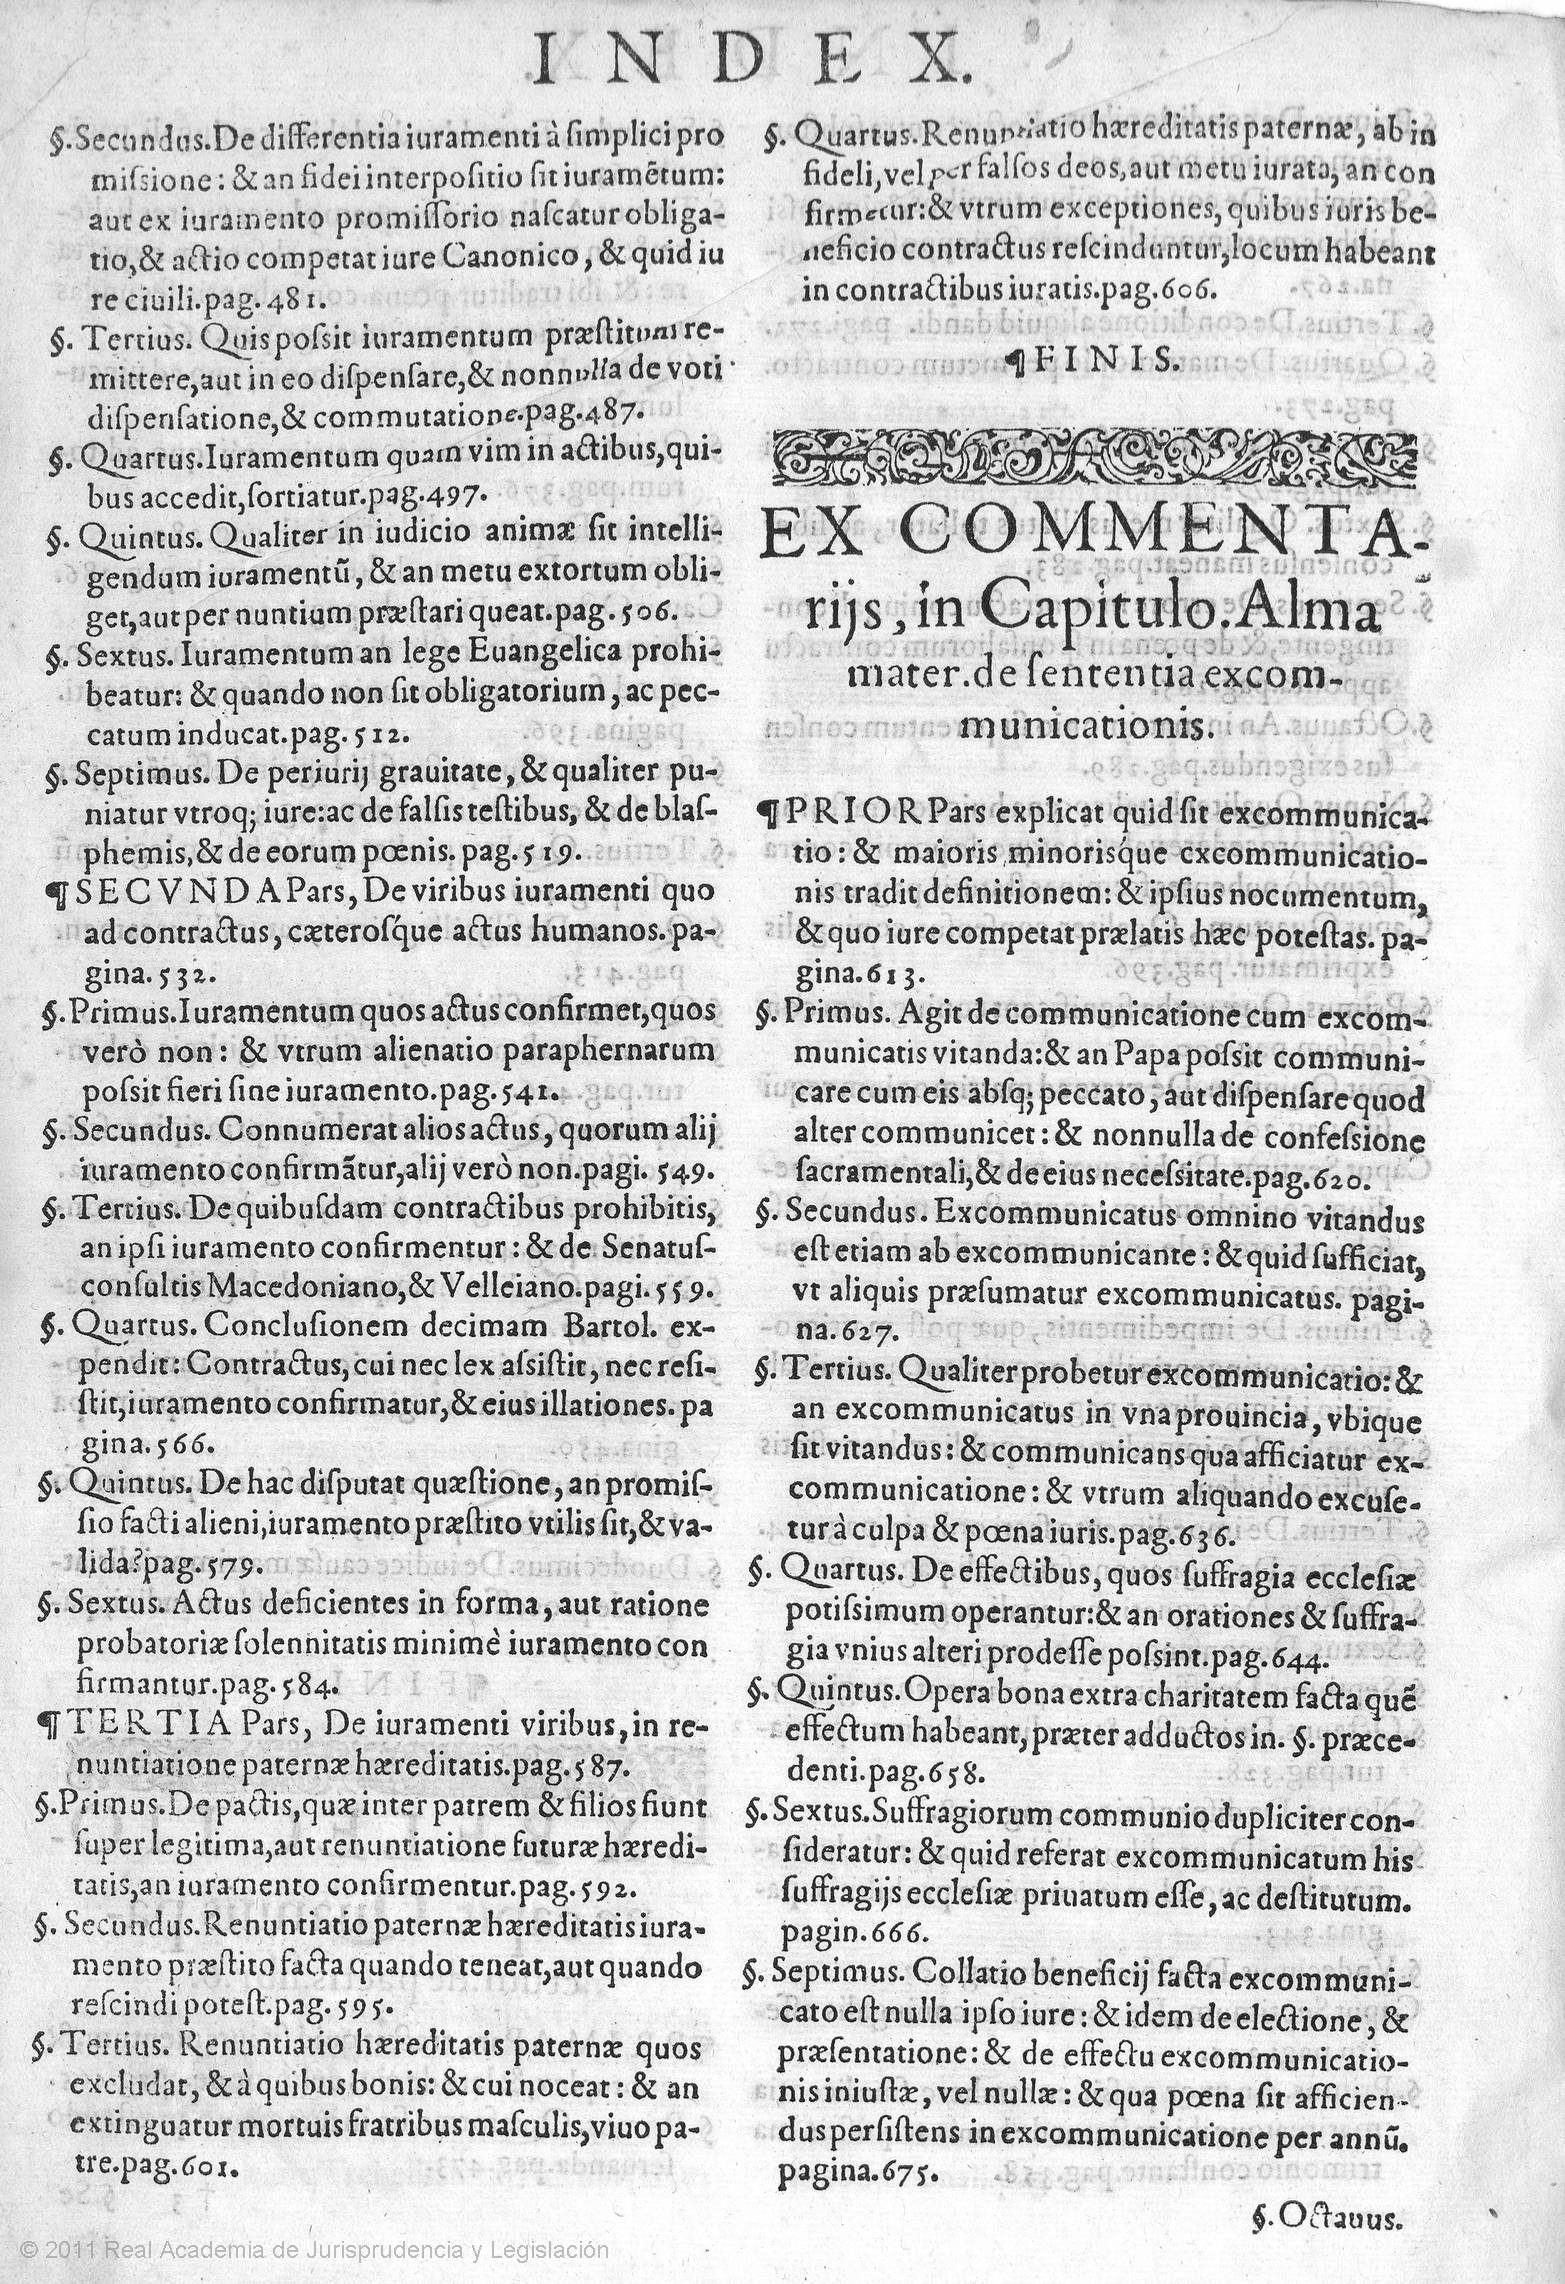 INDEX.
§.Secundus.De differentia iuramenti à ſimplici pro
miſsione: & an fidei interpoſitio ſit iuramẽtum:
aut ex iuramento promiſſorio naſcatur obliga-
tio,& actio competat iure Canonico, & quid iu
re ciuili.pag.481.
§. Tertius. Quis poſsit iuramentum præſtitum re-
mittere,aut in eo diſpenſare,& nonnulla de voti
diſpenſatione,& commutatione.pag.487.
§. Quartus.Iuramentum quam vim in actibus,qui-
bus accedit,ſortiatur.pag.497.
§. Quintus. Qualiter in iudicio animæ ſit intelli-
gendum iuramentũ, & an metu extortum obli-
get,aut per nuntium præſtari queat.pag.506.
§. Sextus. Iuramentum an lege Euangelica prohi-
beatur: & quando non ſit obligatorium, ac pec-
catum inducat.pag.512.
§. Septimus. De periurij grauitate, & qualiter pu-
niatur vtroq; iure:ac de falſis teſtibus, & de blaſ-
phemis,& de eorum pœnis. pag.519.
¶SECVNDA Pars, De viribus iuramenti quo
ad contractus, cæteroſq́ue actus humanos. pa-
gina.532.
§.Primus.Iuramentum quos actus confirmet,quos
verò non: & vtrum alienatio paraphernarum
poſsit fieri ſine iuramento.pag.541.
§. Secundus. Connumerat alios actus, quorum alij
iuramento confirmãtur,alij verò non.pagi. 549.
§. Tertius. De quibuſdam contractibus prohibitis,
an ipſi iuramento confirmentur: & de Senatuſ-
conſultis Macedoniano,& Velleiano.pagi.559.
§. Quartus. Concluſionem decimam Bartol. ex-
pendit: Contractus, cui nec lex aſsiſtit, nec reſi-
ſtit,iuramento confirmatur,& eius illationes. pa
gina.566.
§. Quintus. De hac diſputat quæſtione, an promiſ-
ſio facti alieni,iuramento præſtito vtilis ſit,& va-
lida?pag.579.
§. Sextus. Actus deficientes in forma, aut ratione
probatoriæ ſolennitatis minimè iuramento con
firmantur.pag.584.
¶TERTIA Pars, De iuramenti viribus, in re-
nuntiatione paternæ hæreditatis.pag.587.
§.Primus.De pactis,quæ inter patrem & filios fiunt
ſuper legitima,aut renuntiatione futuræ hæredi-
tatis,an iuramento confirmentur.pag.592.
§. Secundus.Renuntiatio paternæ hæreditatis iura-
mento præſtito facta quando teneat,aut quando
reſcindi poteſt.pag.595.
§. Tertius. Renuntiatio hæreditatis paternæ quos
excludat, & à quibus bonis: & cui noceat: & an
extinguatur mortuis fratribus maſculis,viuo pa-
tre.pag.601.
§. Quartus.Renuntiatio hæreditatis paternæ, ab in
fideli,vel per falſos deos,aut metu iurata, an con
firmetur:& vtrum exceptiones, quibus iuris be-
neficio contractus reſcinduntur,locum habeant
in contractibus iuratis.pag.606.
¶FINIS.
EX COMMENTA-
rijs, in Capitulo. Alma
mater.de ſententia excom-
municationis.
¶PRIOR Pars explicat quid ſit excommunica-
tio: & maioris minoriſq́ue excommunicatio-
nis tradit definitionem: & ipſius nocumentum,
& quo iure competat prælatis hæc poteſtas. pa-
gina.613.
§. Primus. Agit de communicatione cum excom-
municatis vitanda:& an Papa poſsit communi-
care cum eis abſq; peccato, aut diſpenſare quod
alter communicet: & nonnulla de confeſsione
ſacramentali,& de eius neceſsitate.pag.620.
§. Secundus. Excommunicatus omnino vitandus
eſt etiam ab excommunicante: & quid ſufficiat,
vt aliquis præſumatur excommunicatus. pagi-
na.627.
§. Tertius. Qualiter probetur excommunicatio: &
an excommunicatus in vna prouincia, vbique
ſit vitandus: & communicans qua afficiatur ex-
communicatione: & vtrum aliquando excuſe-
tur à culpa & pœna iuris.pag.636.
§. Quartus. De effectibus, quos ſuffragia eccleſiæ
potiſsimum operantur:& an orationes & ſuffra-
gia vnius alteri prodeſſe poſsint.pag.644.
§. Quintus.Opera bona extra charitatem facta quẽ
effectum habeant, præter adductos in. §. præce-
denti.pag.658.
§.Sextus.Suffragiorum communio dupliciter con-
ſideratur: & quid referat excommunicatum his
ſuffragijs eccleſiæ priuatum eſſe, ac deſtitutum.
pagin.666.
§. Septimus. Collatio beneficij facta excommuni-
cato eſt nulla ipſo iure: & idem de electione, &
præſentatione: & de effectu excommunicatio-
nis iniuſtæ, vel nullæ: & qua pœna ſit afficien-
dus perſiſtens in excommunicatione per annũ.
pagina.675.
§.Octauus.
© 2011 Real Academia de Jurisprudencia y Legislación